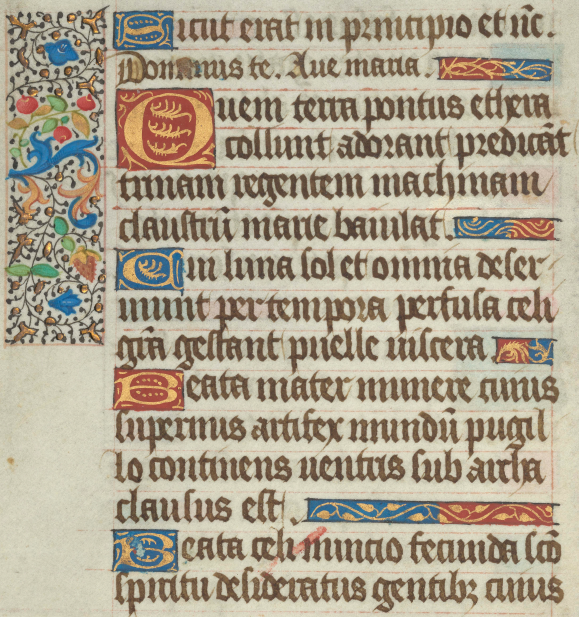 Sicut erat in principio et nūc.
Dominus te. Aue maria.
Quem terra pontus ethera
collunt adorant predicāt
trinam regentem machinam
claustrū marie baiulat.
Cui luna sol et omnia deser
uiunt per tempora perfusa celi
grā gestant puelle uiscera.
Beata mater munere cuius
supernus artifex mundū pugil
lo continens uentris sub archa
clausus est.
Beata celi nuncio fecunda scō
spiritu desideratus gentibꝫ cuius